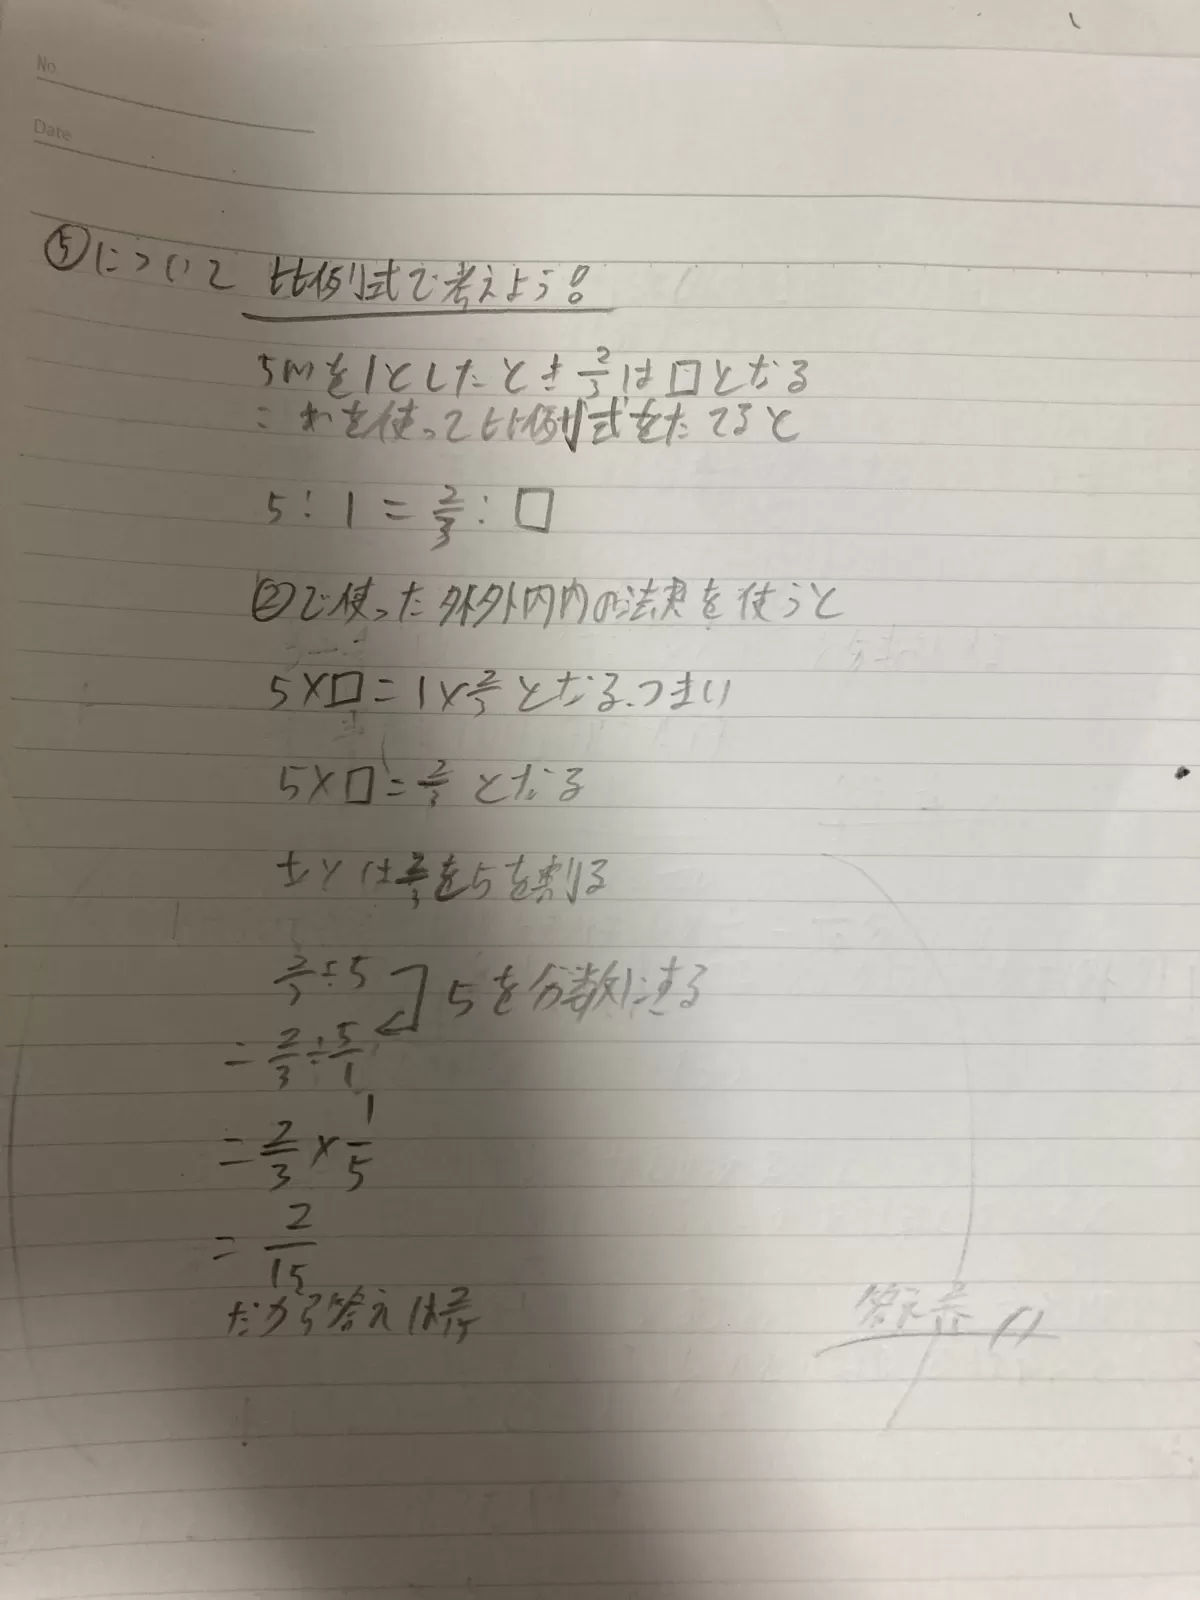 No
Date
⑤について 比例式で考えよう!
5mを1としたとき2/3は□となる
これを使って比例式をたてると
5:1=2/3:□
②で使った外外内内の法則を使うと
5×□=1×2/3となる、つまり
5×□=2/3となる
あとは2/3を5を割る
2/3÷5
5を分数にする
=2/3÷5/1
=2/3×1/5
=2/15
だから答えは2/15
答え 2/15